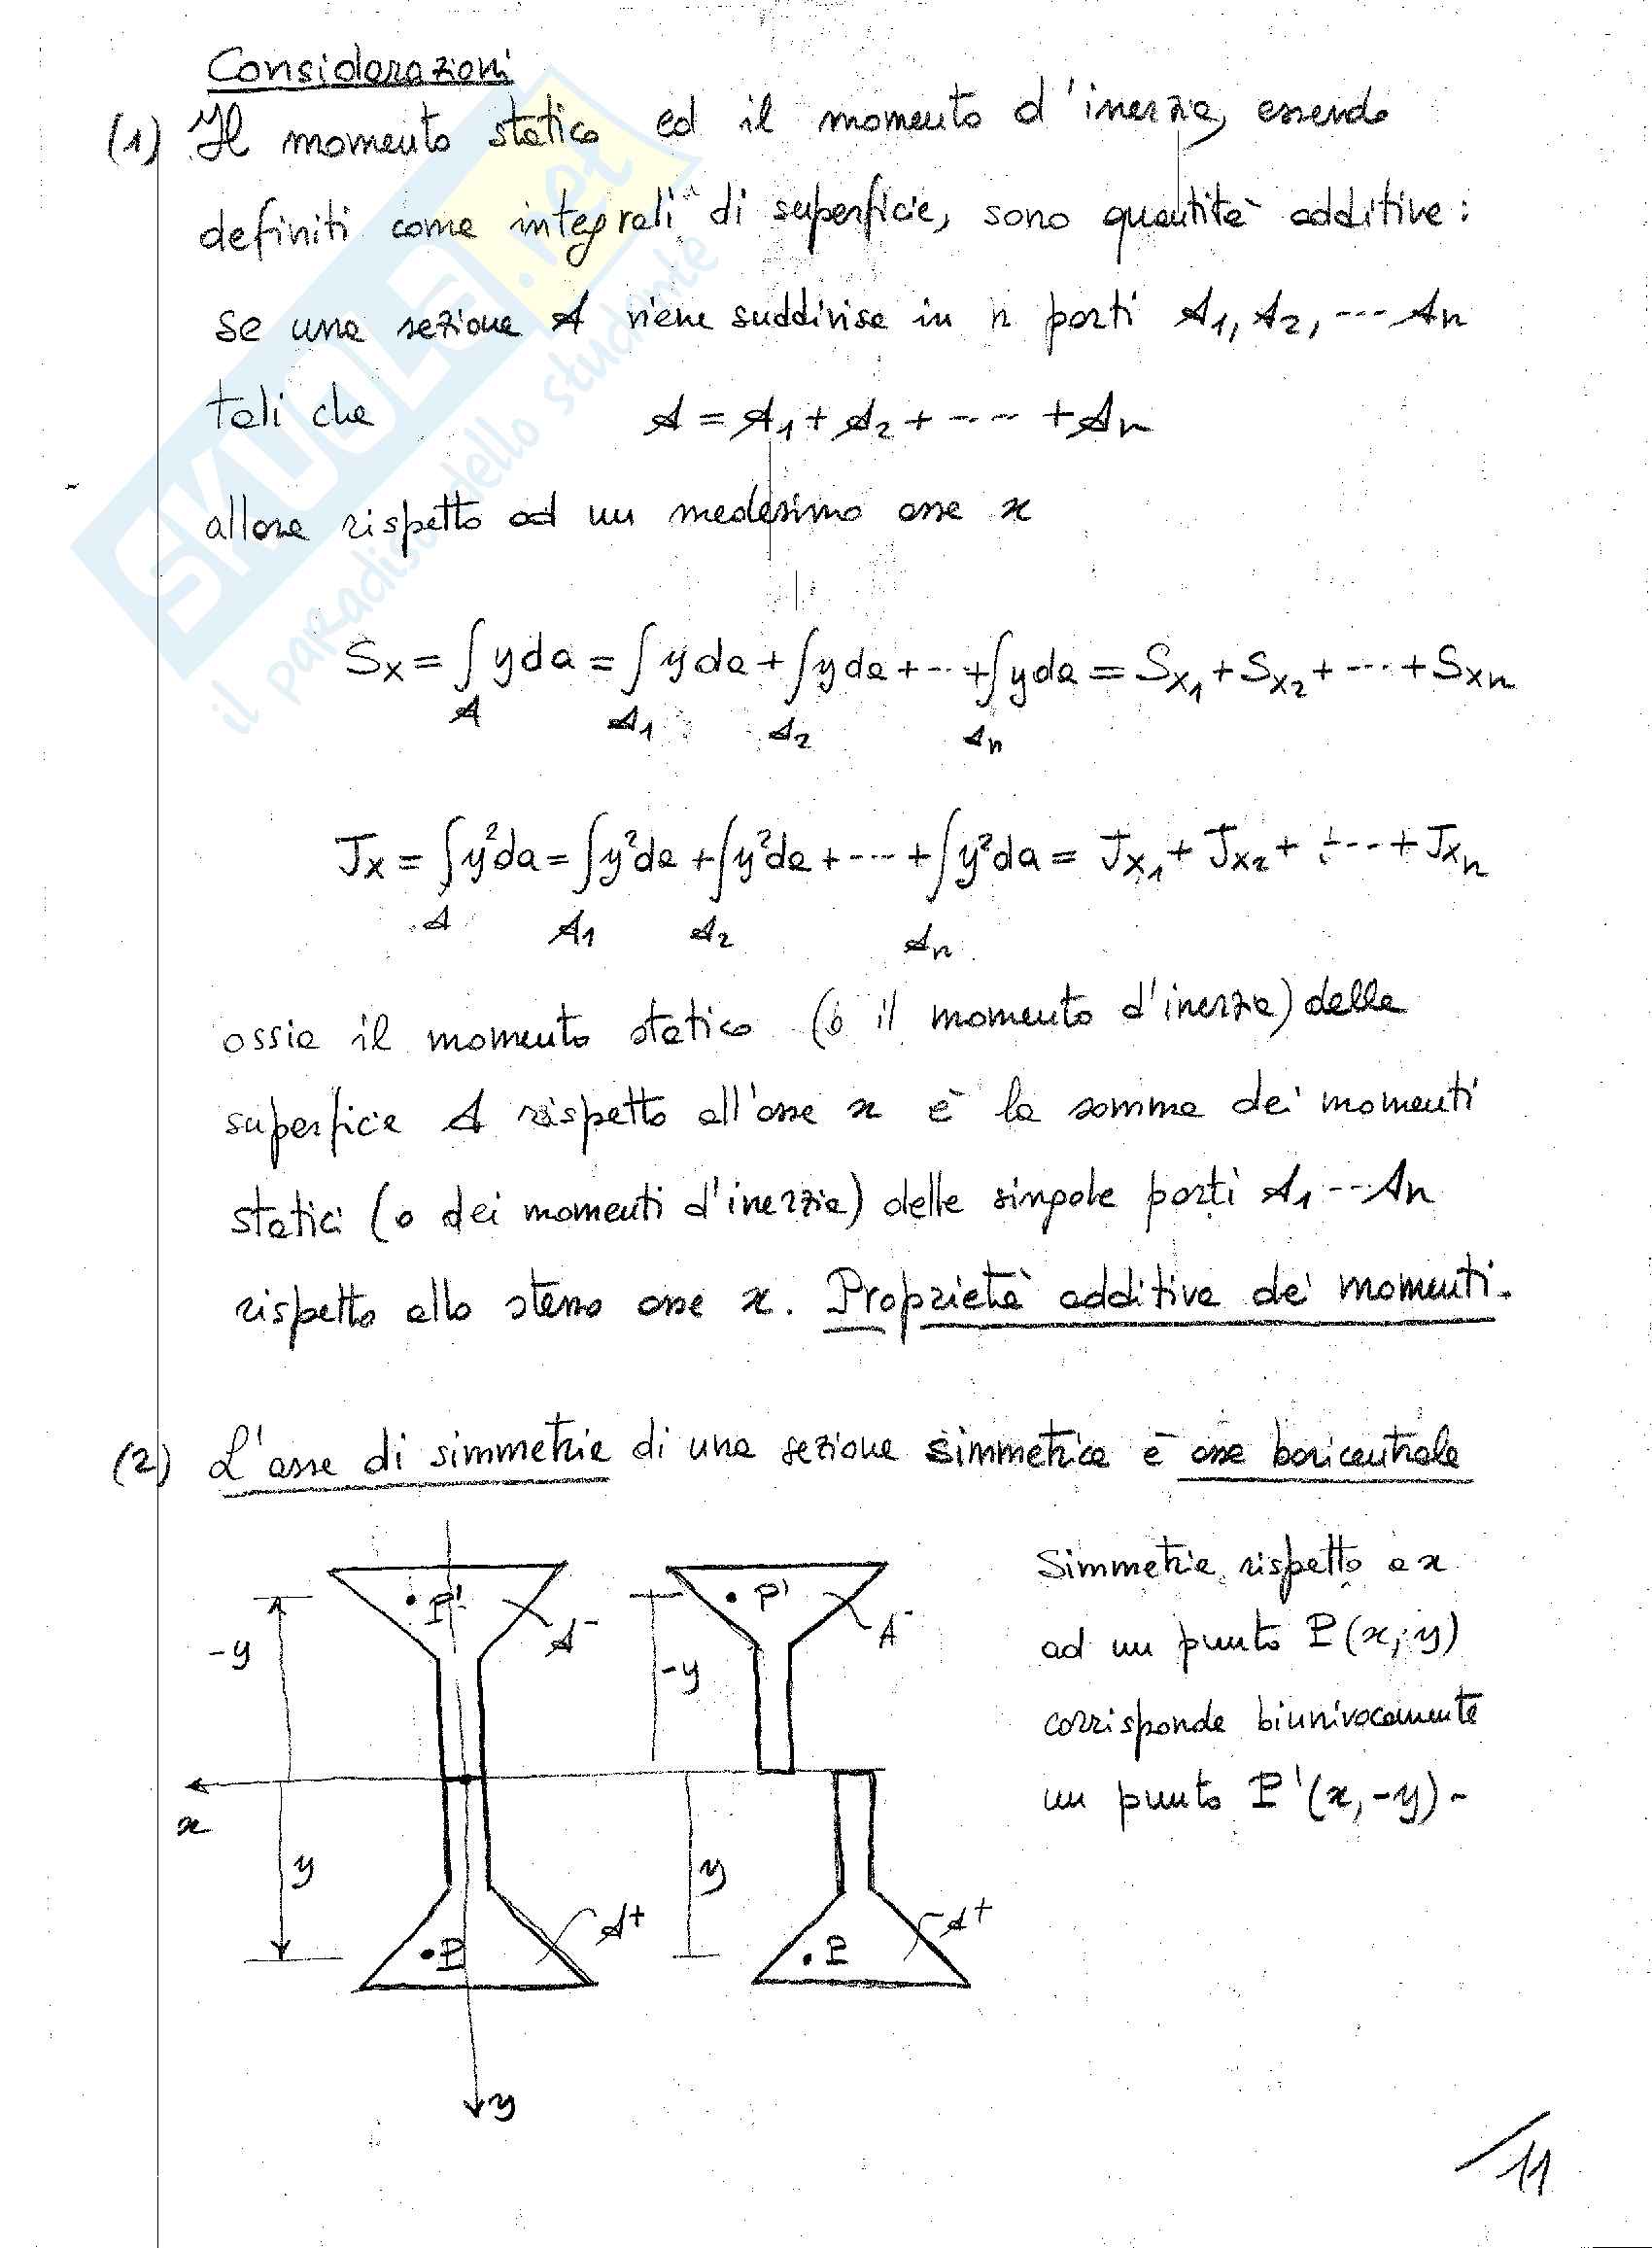 Considerazioni
(1) Il momento statico ed il momento d'inerzia, essendo
definiti come integrali di superficie, sono quantità additive:
se una sezione A viene suddivisa in n parti A1, A2, --- An
tali che A = A1 + A2 + --- + An
allora rispetto ad un medesimo asse x
Sx = ∫ y da = ∫ y da + ∫ y da + --- + ∫ y da = Sx1 + Sx2 + --- + Sxn
A A1 A2 An
Jx = ∫ y² da = ∫ y² da + ∫ y² da + --- + ∫ y² da = Jx1 + Jx2 + --- + Jxn
A A1 A2 An
ossia il momento statico (o il momento d'inerzia) della
superficie A rispetto all'asse x è la somma dei momenti
statici (o dei momenti d'inerzia) delle singole parti A1 -- An
rispetto allo stesso asse x. Proprietà additiva dei momenti.
(2) L'asse di simmetria di una sezione simmetrica è asse baricentrale
Simmetria rispetto a x
ad un punto P(x; y)
corrisponde biunivocamente
un punto P'(x, -y) -
P' A- P' A-
-y -y
x
y y
P A+ P A+
y
11
SKUOLA.net
il paradiso dello studente